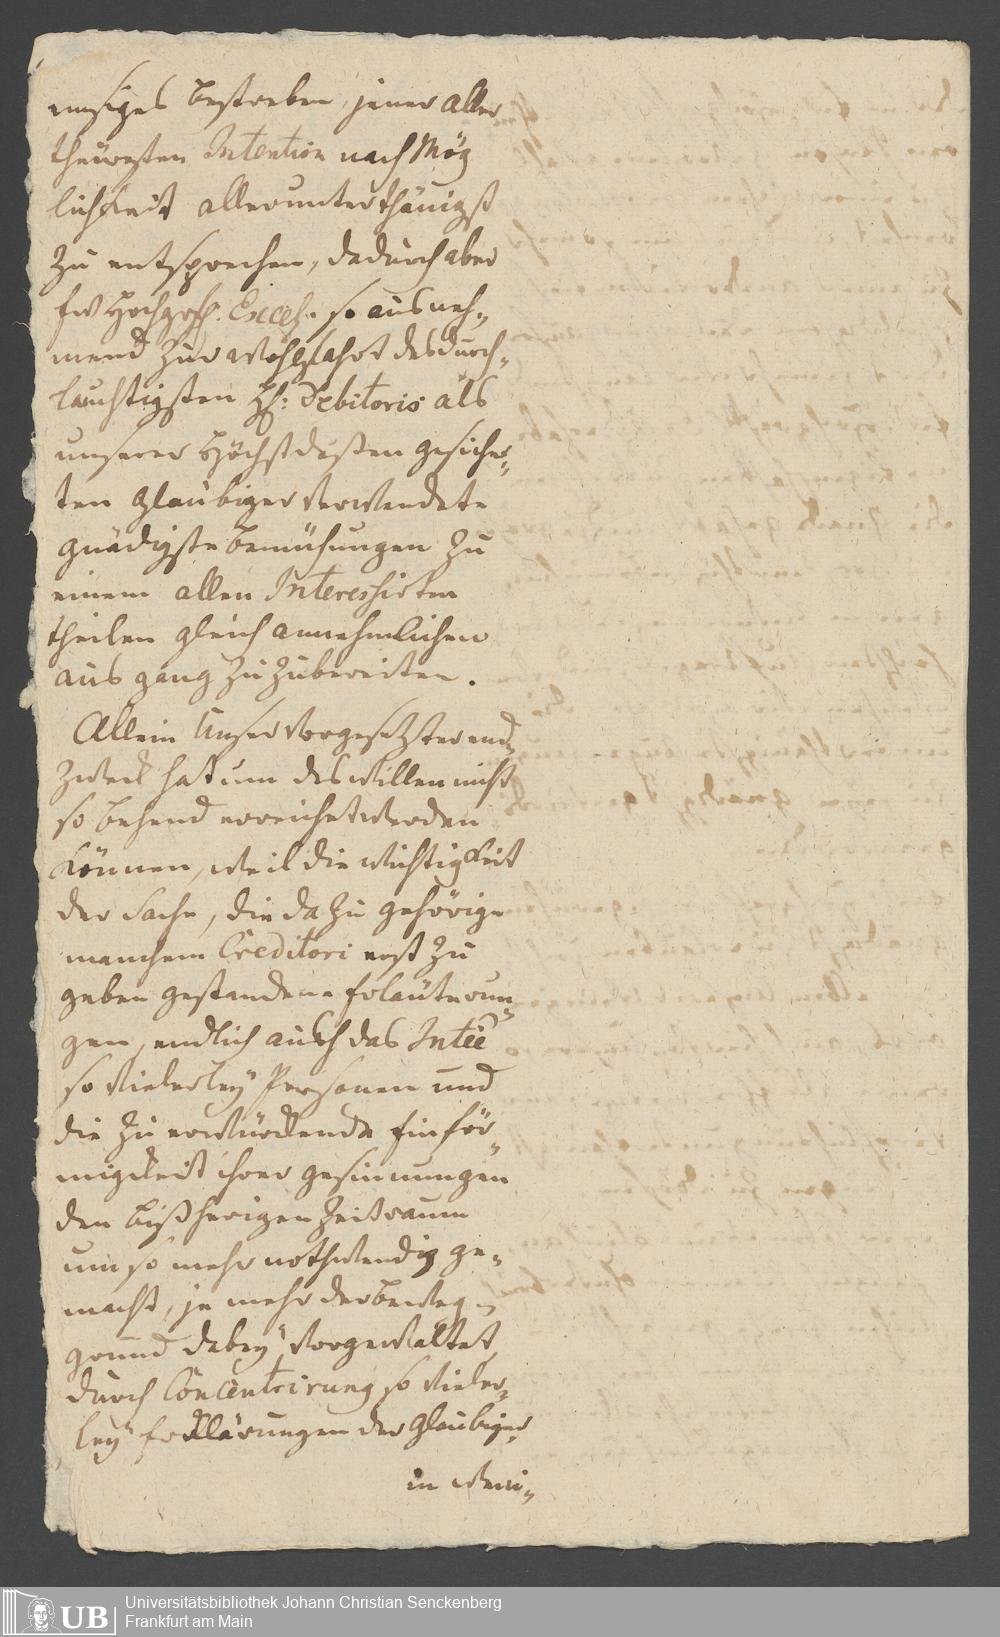 emsiges bestreben, jener aller
theüresten Intention nach Mög
lichkeit allerunterthänigst
zu entsprechen, dadurch aber
Ew Hochgrfl. Excell. so ausneh„
mend zur Wohlfahrt des durch„
lauchtigsten H: Debitoris als
unserer Höchstdesßen gesicher„
ten Glaubiger verwendete
gnädigste bemühungen zu
einem allen Interessirten
theilen gleich annehmlichen
ausgang zu zubereiten.
Allein Unser Vorgesetzter end„
zweck hat um deswillen nicht
so behend erreichet werden
können, weil die wichtigkeit
der Sache, die dazu gehörige
manchem Creditori erst zu
geben gestandene Erläuterun„
gen, endlich auch das Intee
so vielerley Personen und
die zu erwürckende Einför„
migkeit ihrer gesinnungen
den bißherigen Zeitraum
um so mehr nothwendig ge„
macht, je mehr der beweg„
grund dabey vorgewaltet
durch Concentrirung so vieler„
ley Erklärungen der Glaubiger
in weni„
UB
Universitätsbibliothek Johann Christian Senckenberg
Frankfurt am Main